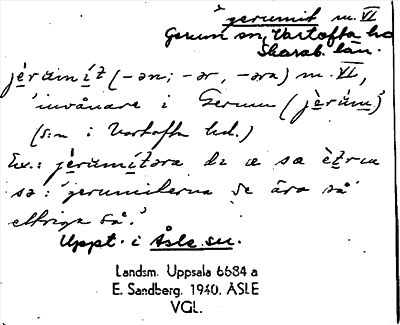 jerumit m. VI
Gerum sn, Vartofta hd
Skarab. län.
jèrumít (-ən; -ər, -ərα) m. VI,
'invånare i Gerum (jèrum)
(s:n i Vartofta hd.)
Ex.: jèrumítərα dı æ sα ètrıα
sə: 'jerumiterna de äro så
ettriga så.'
Uppt. i Åsle sn.
Landsm. Uppsala 6684 a
E. Sandberg. 1940. ÅSLE
VGL.